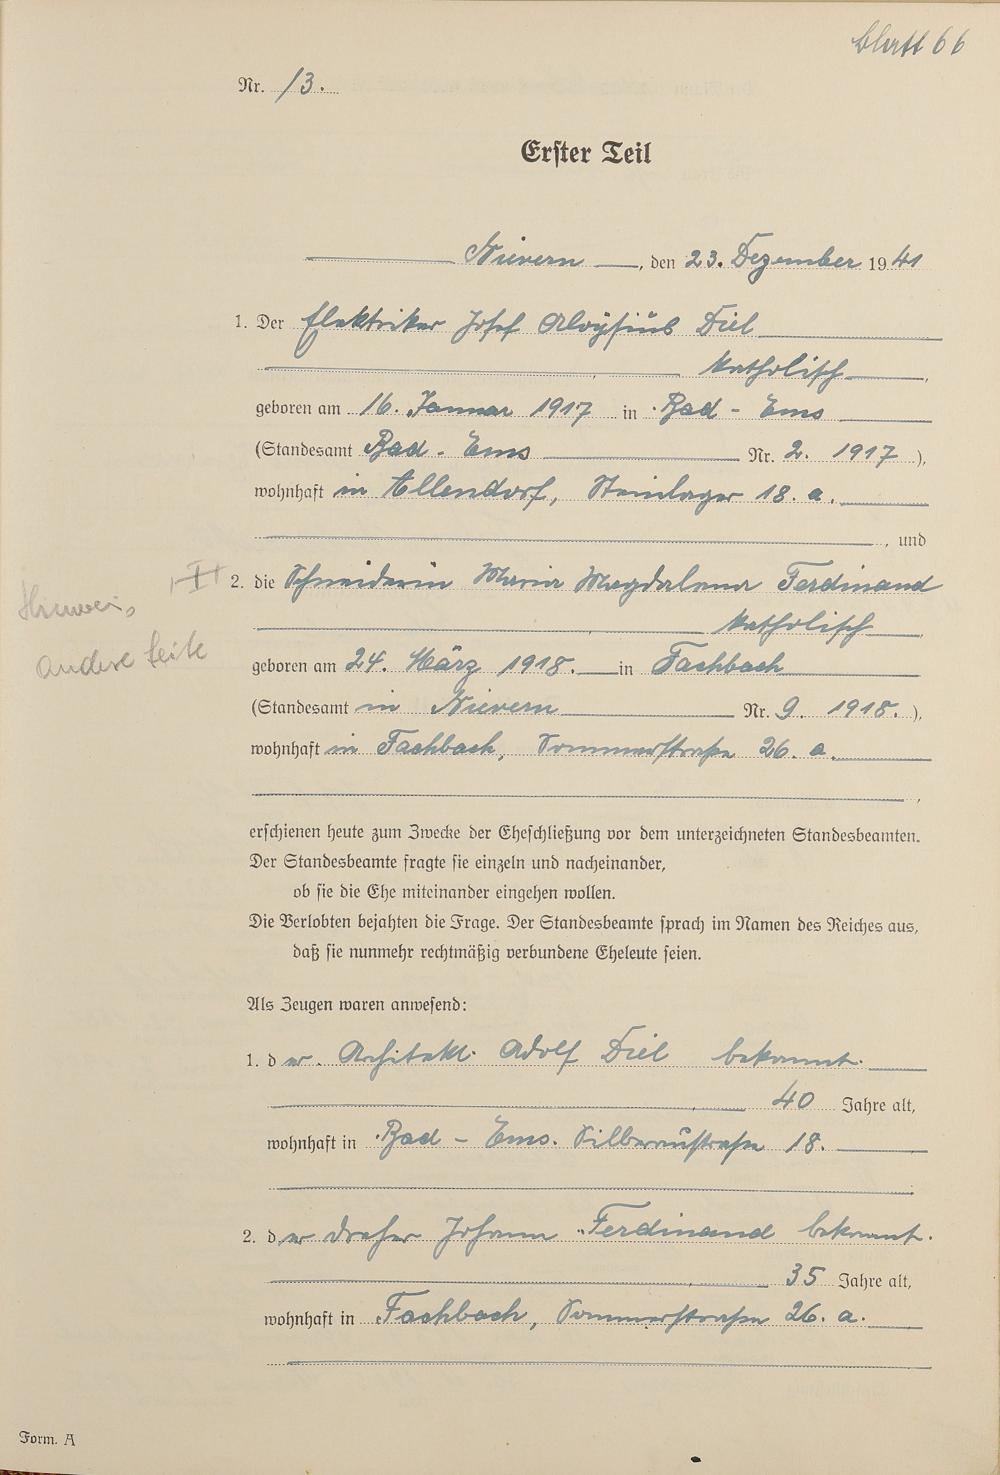 Blatt 66
Nr. 13.
Erster Teil
Nievern, den 23. Dezember 1941
1. Der Elektriker Josef Aloysius Diel
katholisch,
geboren am 16. Januar 1917 in Bad-Ems
(Standesamt Bad-Ems Nr. 2. 1917),
wohnhaft in Allendorf, Steinlager 18. a.
, und
2. die Schneiderin Maria Magdalena Ferdinand
Hinweis
katholisch,
andere Seite
geboren am 24. März 1918. in Fachbach
(Standesamt in Nievern Nr. 9. 1918.),
wohnhaft in Fachbach, Sommerstraße 26. a.
,
erschienen heute zum Zwecke der Eheschließung vor dem unterzeichneten Standesbeamten.
Der Standesbeamte fragte sie einzeln und nacheinander,
ob sie die Ehe miteinander eingehen wollen.
Die Verlobten bejahten die Frage. Der Standesbeamte sprach im Namen des Reiches aus,
daß sie nunmehr rechtmäßig verbundene Eheleute seien.
Als Zeugen waren anwesend:
1. der Architekt Adolf Diel bekannt.
, 40 Jahre alt,
wohnhaft in Bad-Ems. Silberaustraße 18.
2. der Dreher Johann Ferdinand bekannt.
, 35 Jahre alt,
wohnhaft in Fachbach, Sommerstraße 26. a.
Form. A